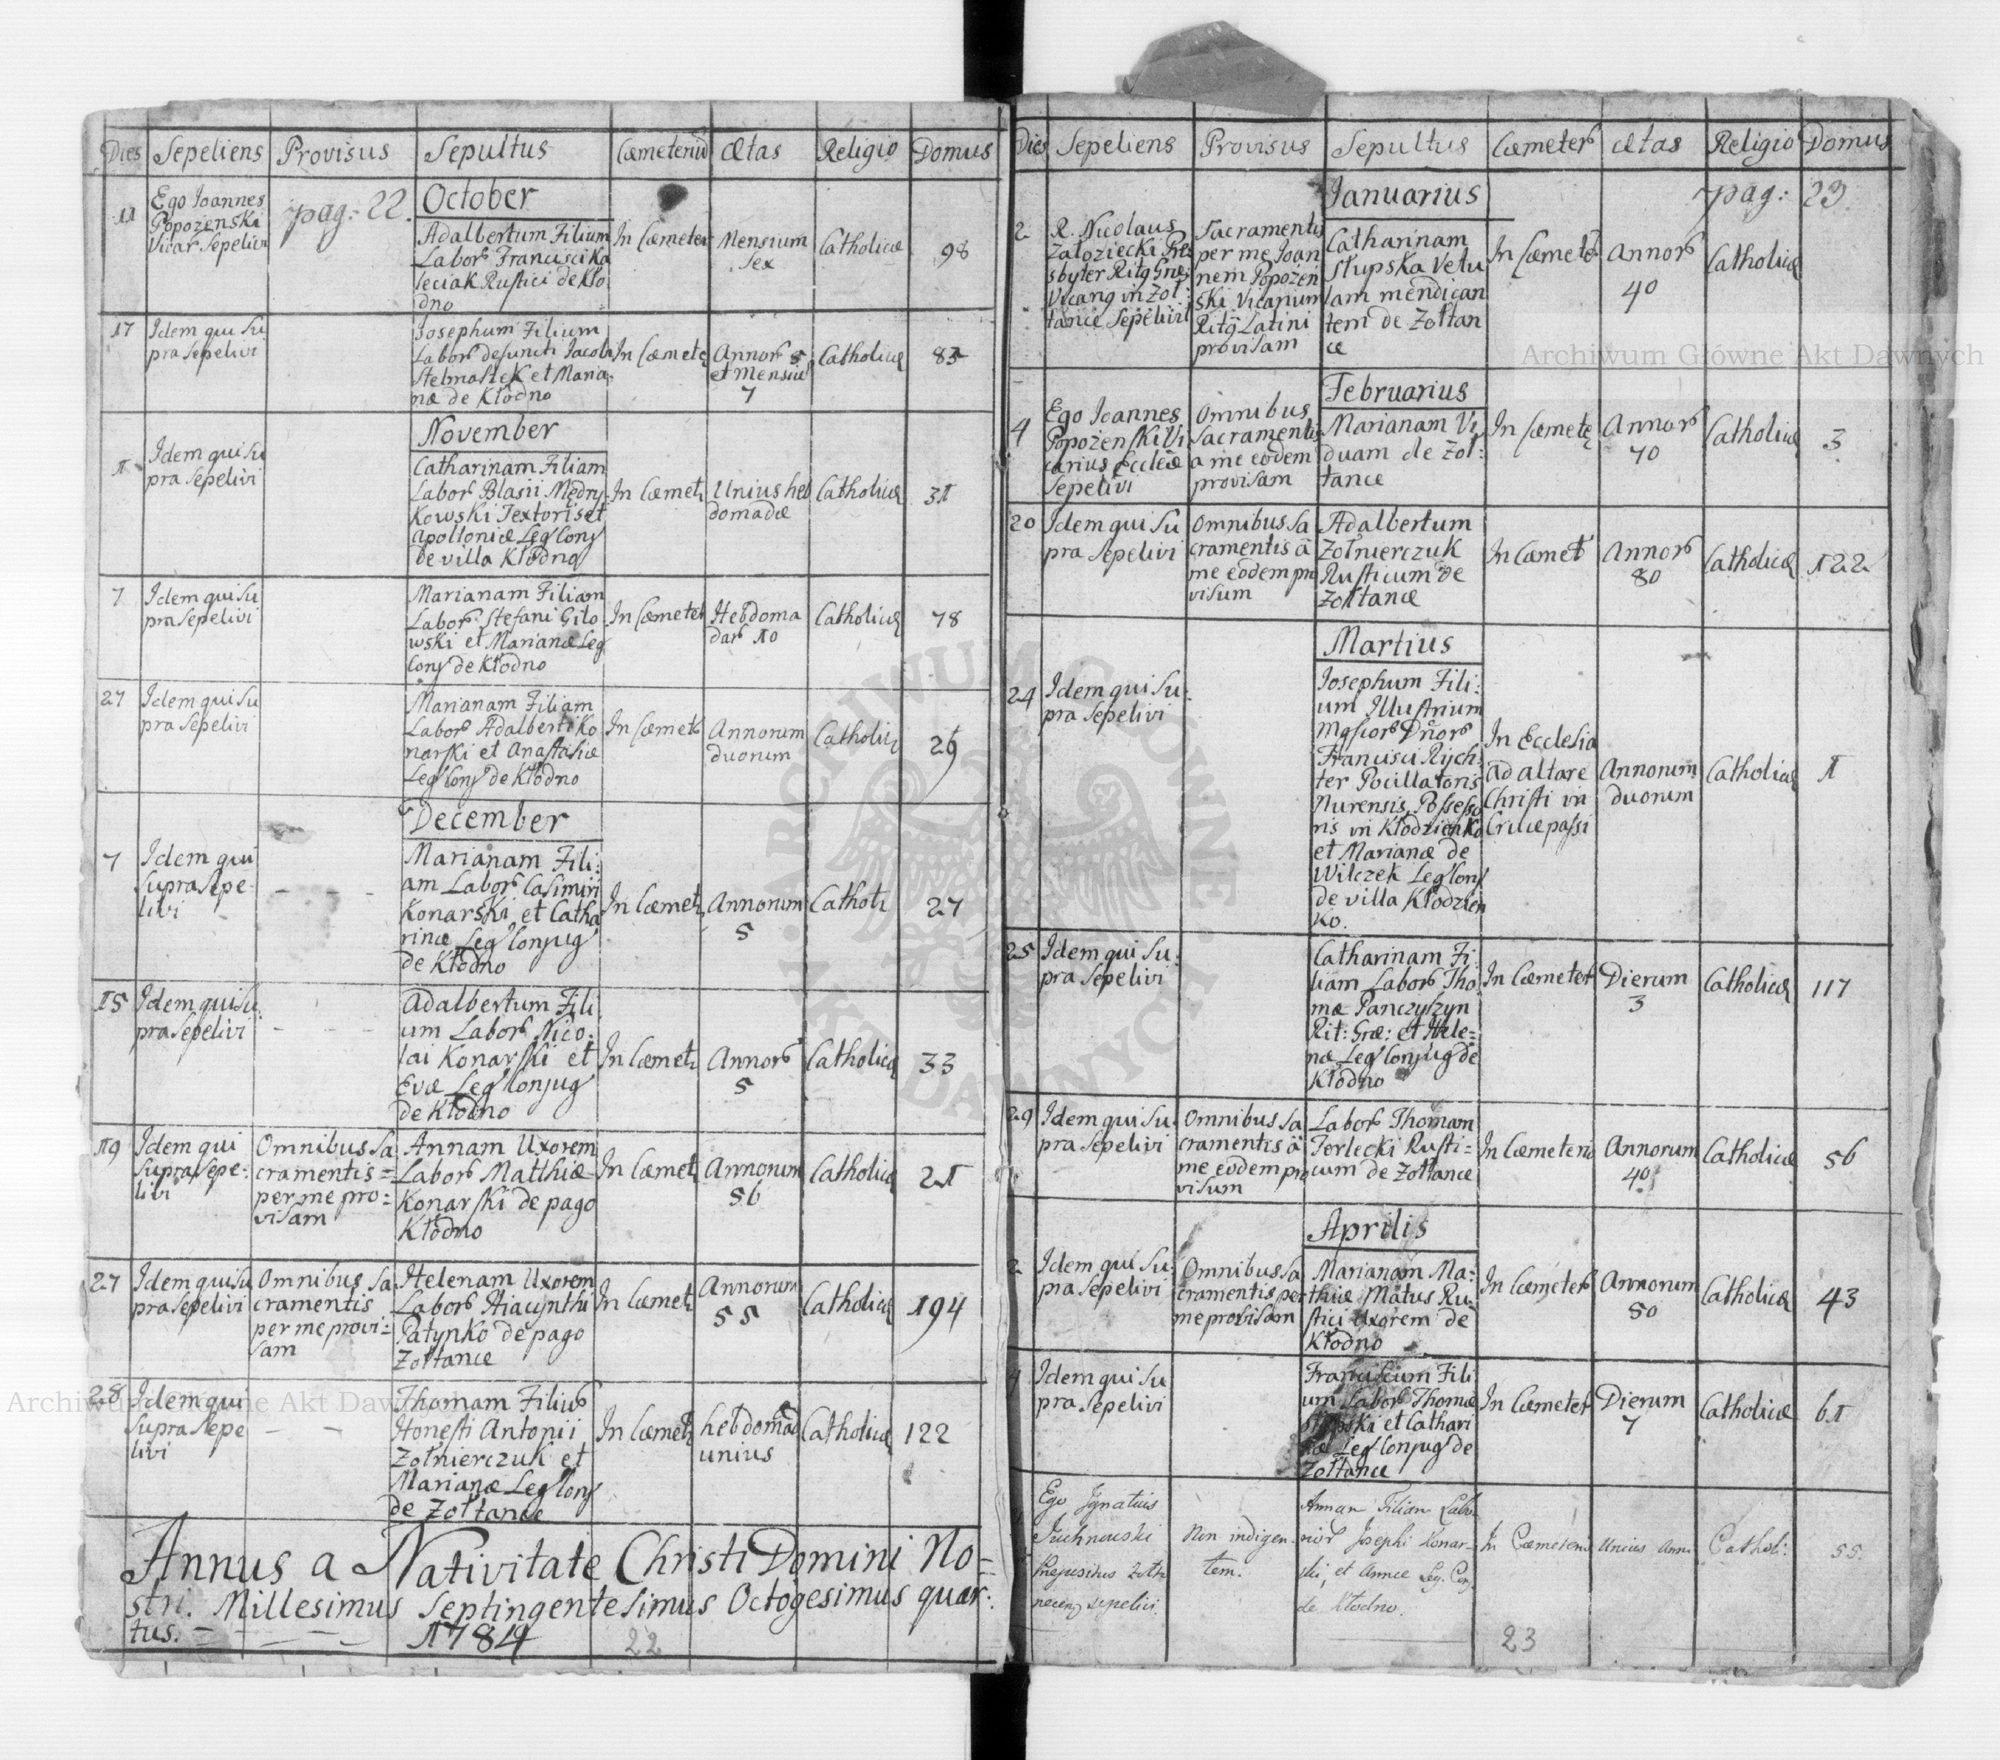 Dies Sepeliens Provisus Sepultus Cæmeteriū Ætas Religio Domus
pag: 22.
October
11
Ego Ioannes
Popożenski
Vicar Sepelivi
Adalbertum Filium
Labor Francisci Ka
leciak Rustici de Kło
dno
In Cæmeter
Mensium
sex
Catholicæ
98
17
Idem qui su
pra sepelivi
Josephum Filium
Labor defuncti Jacobi
Stelmaszek et Maria
næ de Kłodno
In Cæmete
Annor 5
et Mensiū
7
Catholicæ
85
November
1
Idem qui su
pra sepelivi
Catharinam Filiam
Labor Blasii Mędry
kowski Textoris et
Apolloniæ Leg Conj
de villa Kłodno
In Cæmet
Unius heb
domadæ
Catholicæ
31
7
Idem qui su
pra sepelivi
Marianam Filiam
Labor Stefani Gilo
wski et Marianæ Leg
Conj de Kłodno
In Cæmeter
Hebdoma
dar 10
Catholicæ
78
27
Idem qui su
pra sepelivi
Marianam Filiam
Labor Adalberti Ko
narski et Anastasiæ
Leg Conj de Kłodno
In Cæmet
Annorum
duorum
Catholic
26
December
7
Idem qui
supra sepe
livi
Marianam Fili:
am Labor Casimiri
Konarski et Catha
rinæ Leg Conjug
de Kłodno
In Cæmet
Annorum
5
Cathol
27
15
Idem qui su
pra sepelivi
Adalbertum Fili
um Labor Nico:
lai Konarski et
Evæ Leg Conjug
de Kłodno
In Cæmet
Annor
5
Catholicæ
33
19
Idem qui
supra sepe:
livi
Omnibus Sa
cramentis=
per me pro=
visam
Annam Uxorem
Labor Matthiæ
Konarski de pago
Kłodno
In Cæmet
Annorum
56
Catholicæ
21
27
Idem qui su
pra sepelivi
Omnibus Sa
cramentis
per me provi=
sam
Helenam Uxorem
Labor Hiacynthi
Patynko de pago
Zołtance
In Cæmet
Annorum
55
Catholicæ
194
28
Idem qui
supra sepe
livi
Thomam Filium
Honesti Antonii
Zołnierczuk et
Marianæ Leg Conj
de Zołtance
In Cæmet
hebdomad
unius
Catholicæ
122
Annus a Nativitate Christi Domini No=
stri. Millesimus Septingentesimus Octogesimus quar:
tus.
1784
22
Dies Sepeliens Provisus Sepultus Cæmeter Ætas Religio Domus
pag: 23
Januarius
2
R. Nicolaus
Załoziecki Pre
sbyter Ritq Græ:
Vicanq in Zoł
tance sepelivit
Sacramentis
per me Joan
nem Popożen
ski Vicarium
Ritq Latini
provisam
Catharinam
Słupska Vetu
lam mendican
tem de Zołtan
ce
In Cæmete
Annor
40
Catholicæ
Februarius
4
Ego Ioannes
Popożenski Vi
carius Eccleæ
sepelivi
Omnibus
Sacramentis
a me eodem
provisam
Marianam Vi
duam de Zoł:
tance
In Cæmete
Annor
70
Catholicæ
3
20
Idem qui su
pra sepelivi
Omnibus Sa
cramentis a
me eodem pro
visum
Adalbertum
Zołnierczuk
Rusticum de
Zołtance
In Cæmet
Annor
80
Catholicæ
122
Martius
24
Idem qui su:
pra sepelivi
Josephum Fili:
um Illustrium
Mgfcor Dnor
Francisci Rych
ter Pocillatoris
Nurensis Possesso
ris in Kłodzienko
et Marianæ de
Wilczek Leg Conj
de villa Kłodzien
ko.
In Ecclesia
ad altare
Christi in
Cruce passi
Annorum
duorum
Catholicæ
1
25
Idem qui su:
pra sepelivi
Catharinam Fi
liam Labor Tho
mæ Panczyszyn
Rit: Græ: et Hele=
næ Leg Conjug de
Kłodno
In Cæmeter
Dierum
3
Catholicæ
117
29
Idem qui su:
pra sepelivi
Omnibus Sa
cramentis a
me eodem pro
visum
Labor Thomam
Terlecki Rusti=
cum de Zołtance
In Cæmeterio
Annorum
40
Catholicæ
56
Aprilis
2
Idem qui su:
pra sepelivi
Omnibus Sa
cramentis per
me provisam
Marianam Ma:
thiæ Matus Ru
stici Uxorem de
Kłodno
In Cæmeter
Annorum
50
Catholicæ
43
4
Idem qui su
pra sepelivi
Franciscum Fili
um Labor Thomæ
et Cathari
næ Leg Conjug de
Zołtance
In Cæmeter
Dierum
7
Catholicæ
61
Ego Ignatius
Juchnowski
Præpositus Zołta
necen sepelivi.
Non indigen
tem.
Annam Filiam Labo
rior Josephi Konar
ski, et Annæ Leg. Conj.
de Kłodno.
In Cæmeterio
Unius Anni
Catholi:
55.
23
Archiwum Główne Akt Dawnych
Archiwum Główne Akt Dawnych
ARCHIWUM GŁÓWNE AKT DAWNYCH